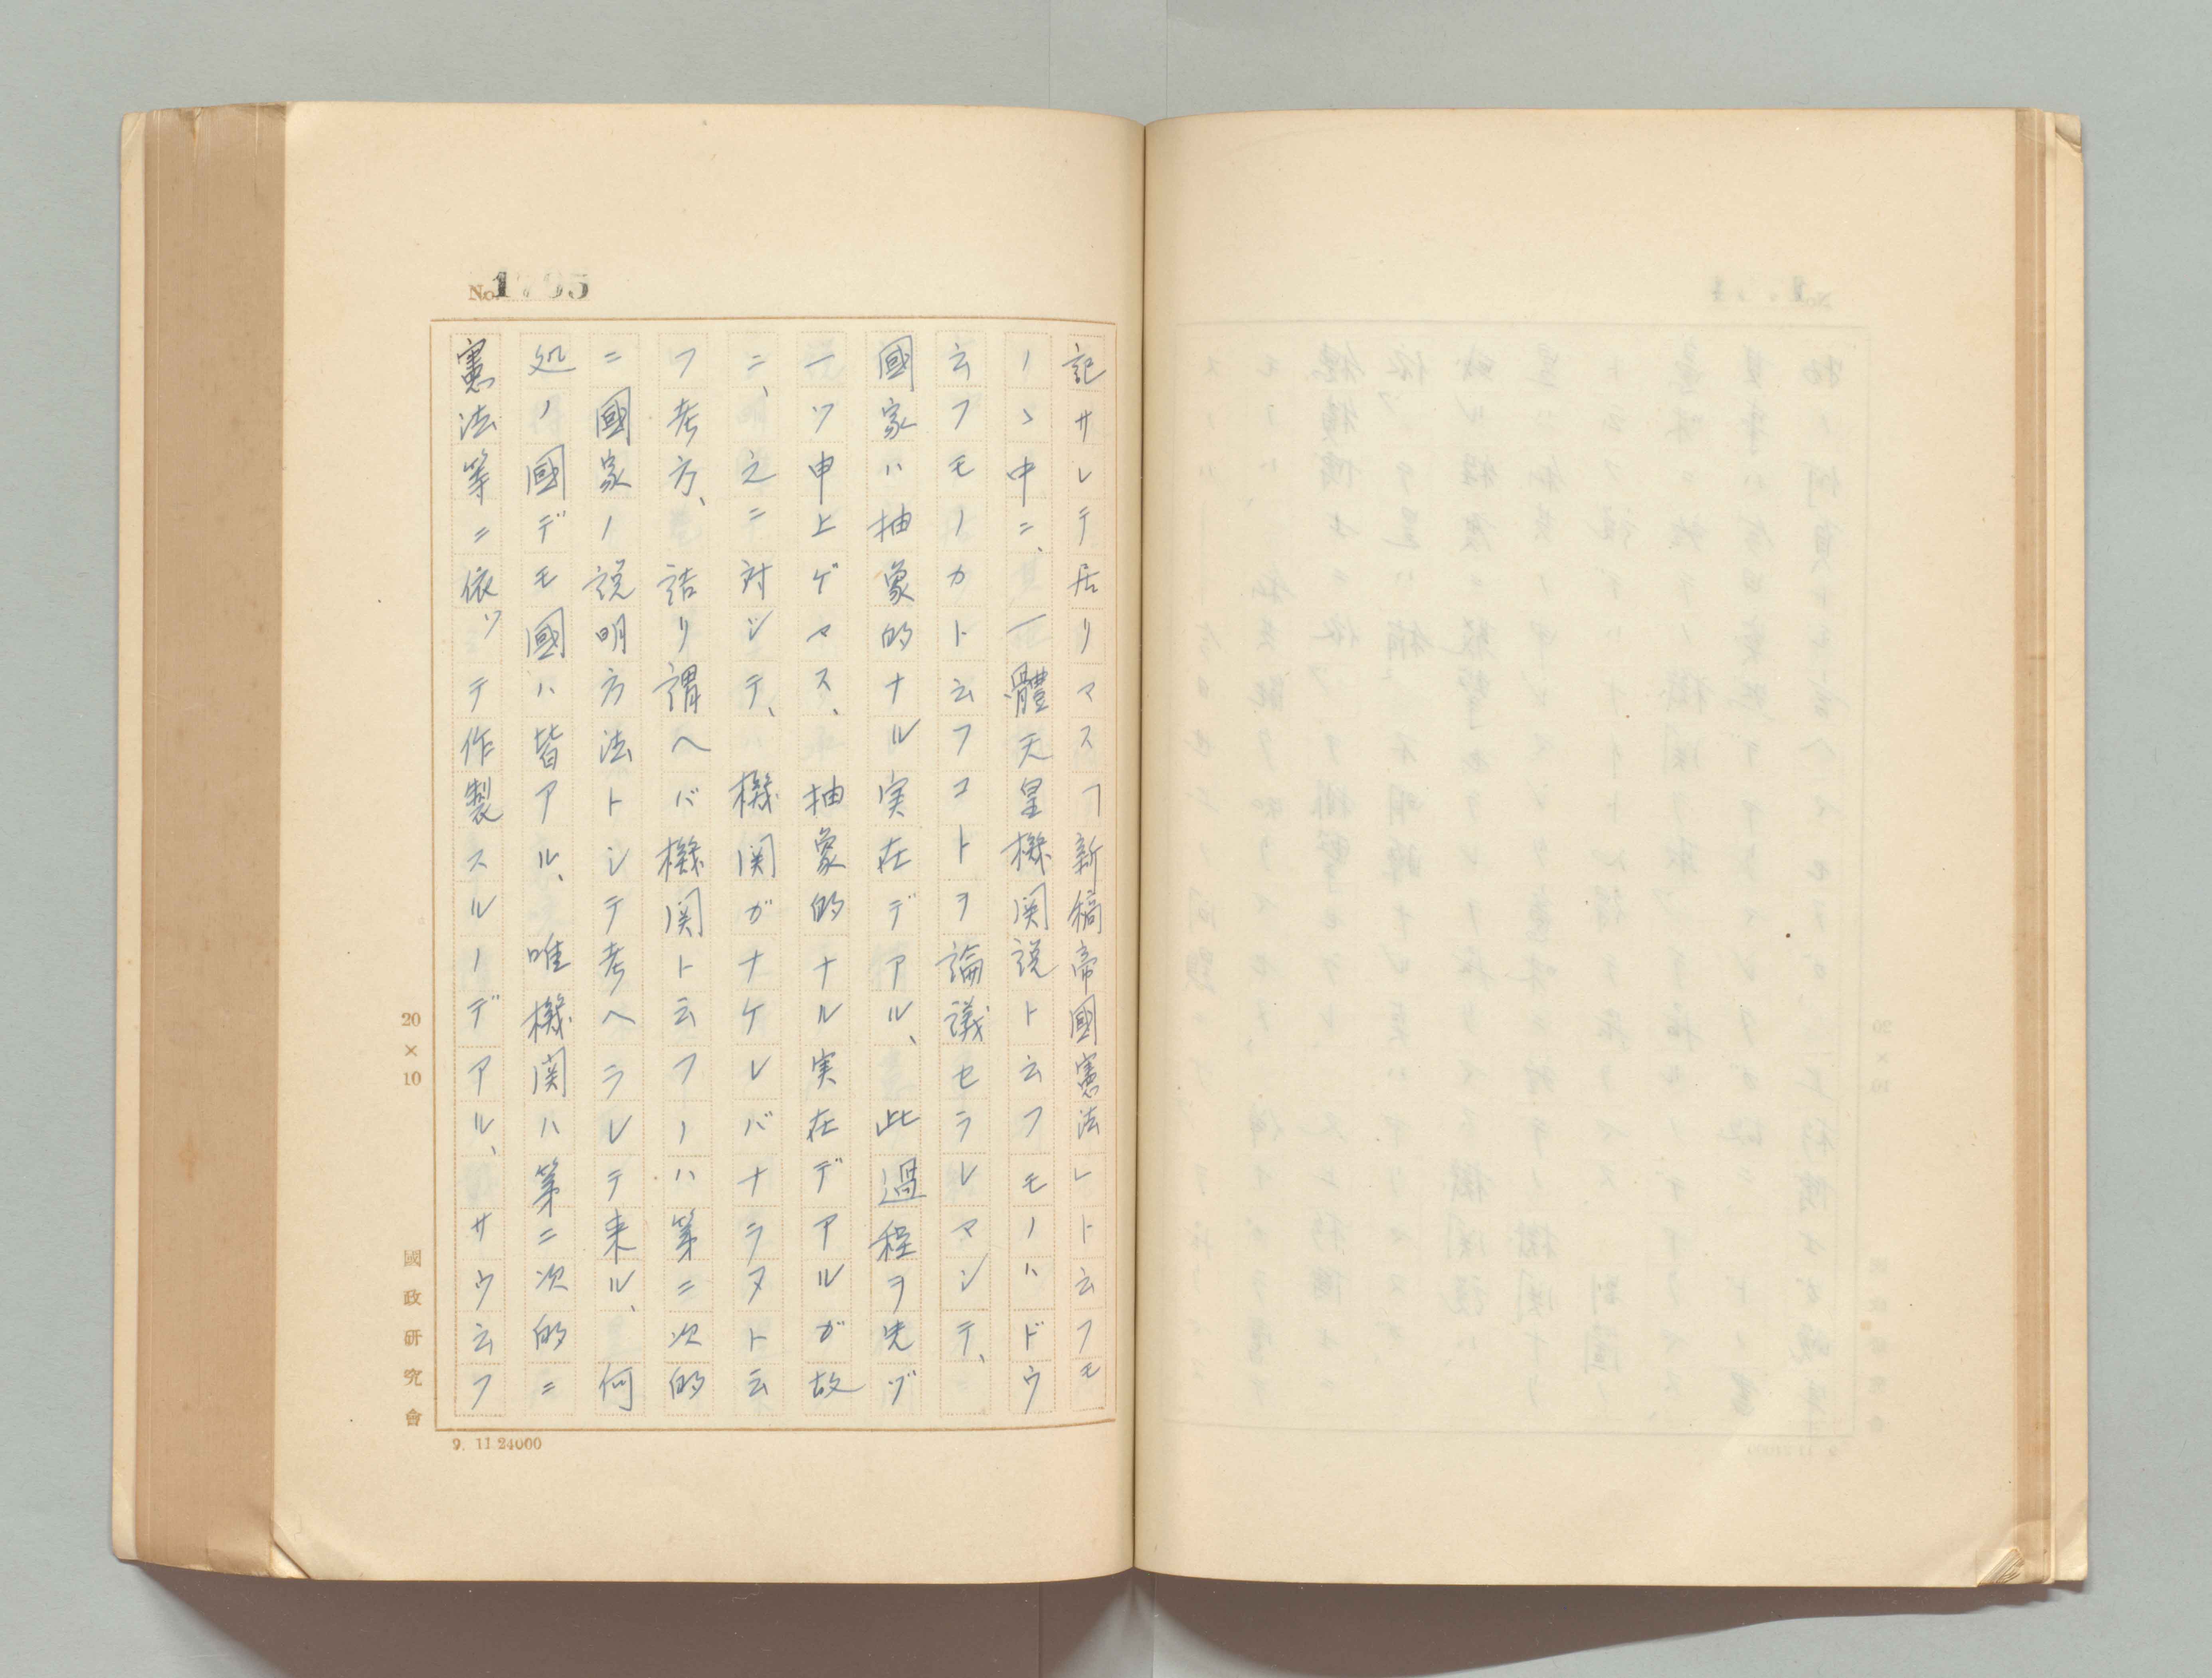 No.1795
記サレテ居リマス「新稿帝國憲法」ト云フモ
ノヽ中ニ、一體天皇機関説ト云フモノハドウ
云フモノカト云フコトヲ論議セラレマシテ、
國家ハ抽象的ナル実在デアル、此過程ヲ先ヅ
一ツ申上ゲマス、抽象的ナル実在デアルガ故
ニ、之ニ対シテ、機関ガナケレバナラヌト云
フ考方、詰リ謂ヘバ機関ト云フノハ第二次的
ニ國家ノ説明方法トシテ考ヘラレテ来ル、何
処ノ國デモ國ハ皆アル、唯機関ハ第二次的ニ
憲法等ニ依ッテ作製スルノデアル、サウ云フ
20×10
國政研究會
9. 11.24000